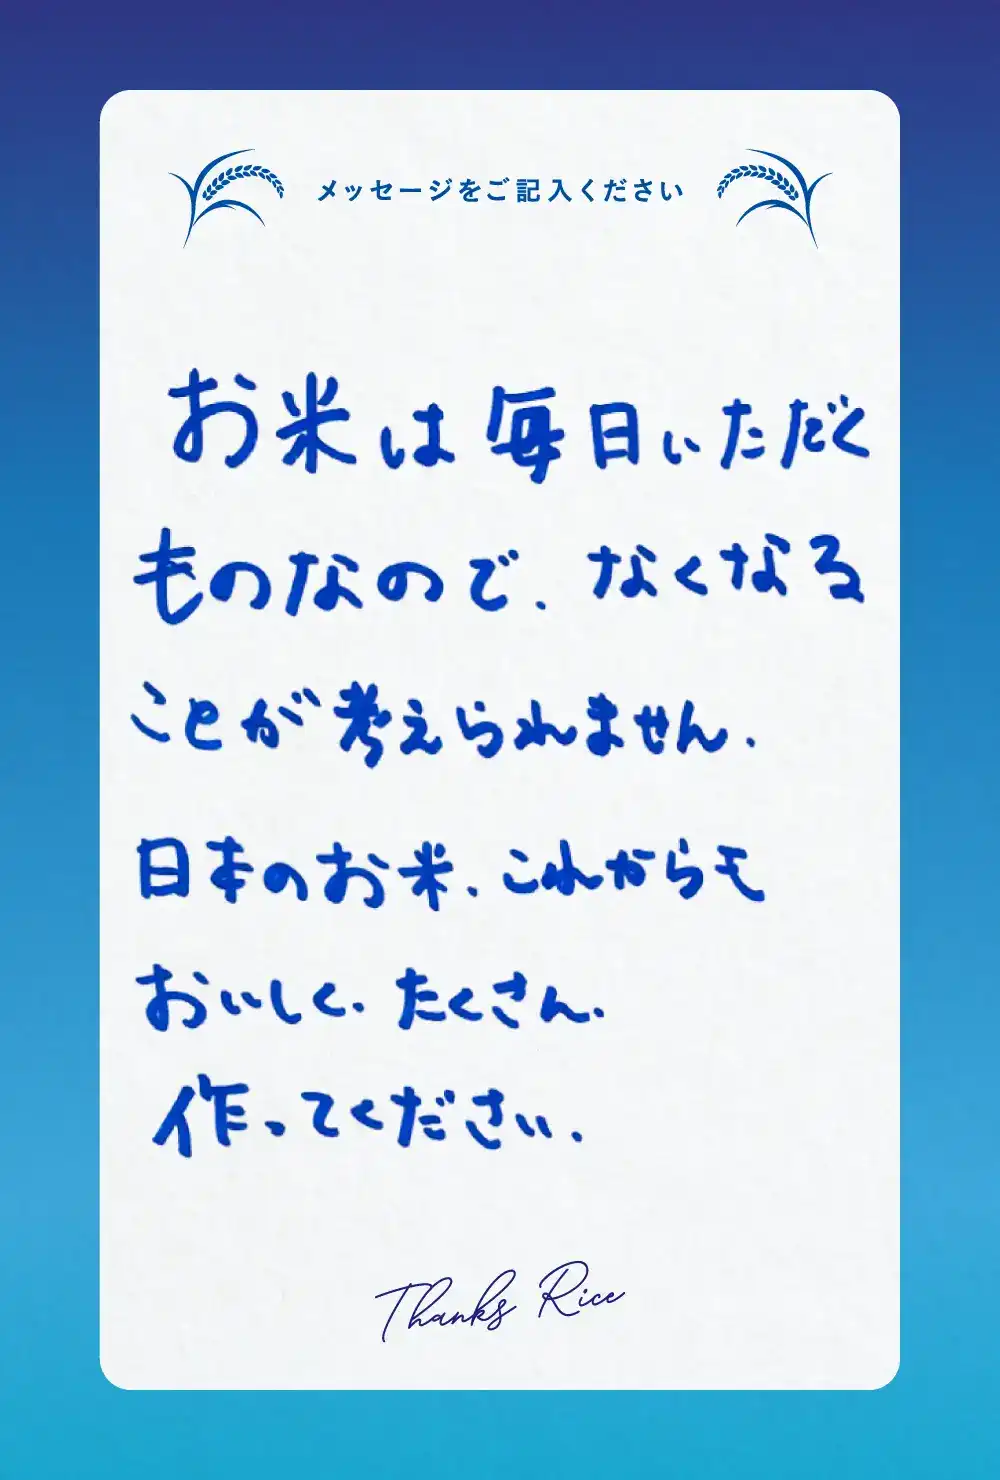 メッセージをご記入ください
お米は毎日いただく
ものなので、なくなる
ことが考えられません.
日本のお米、これからも
おいしく、たくさん、
作ってください.
Thanks Rice